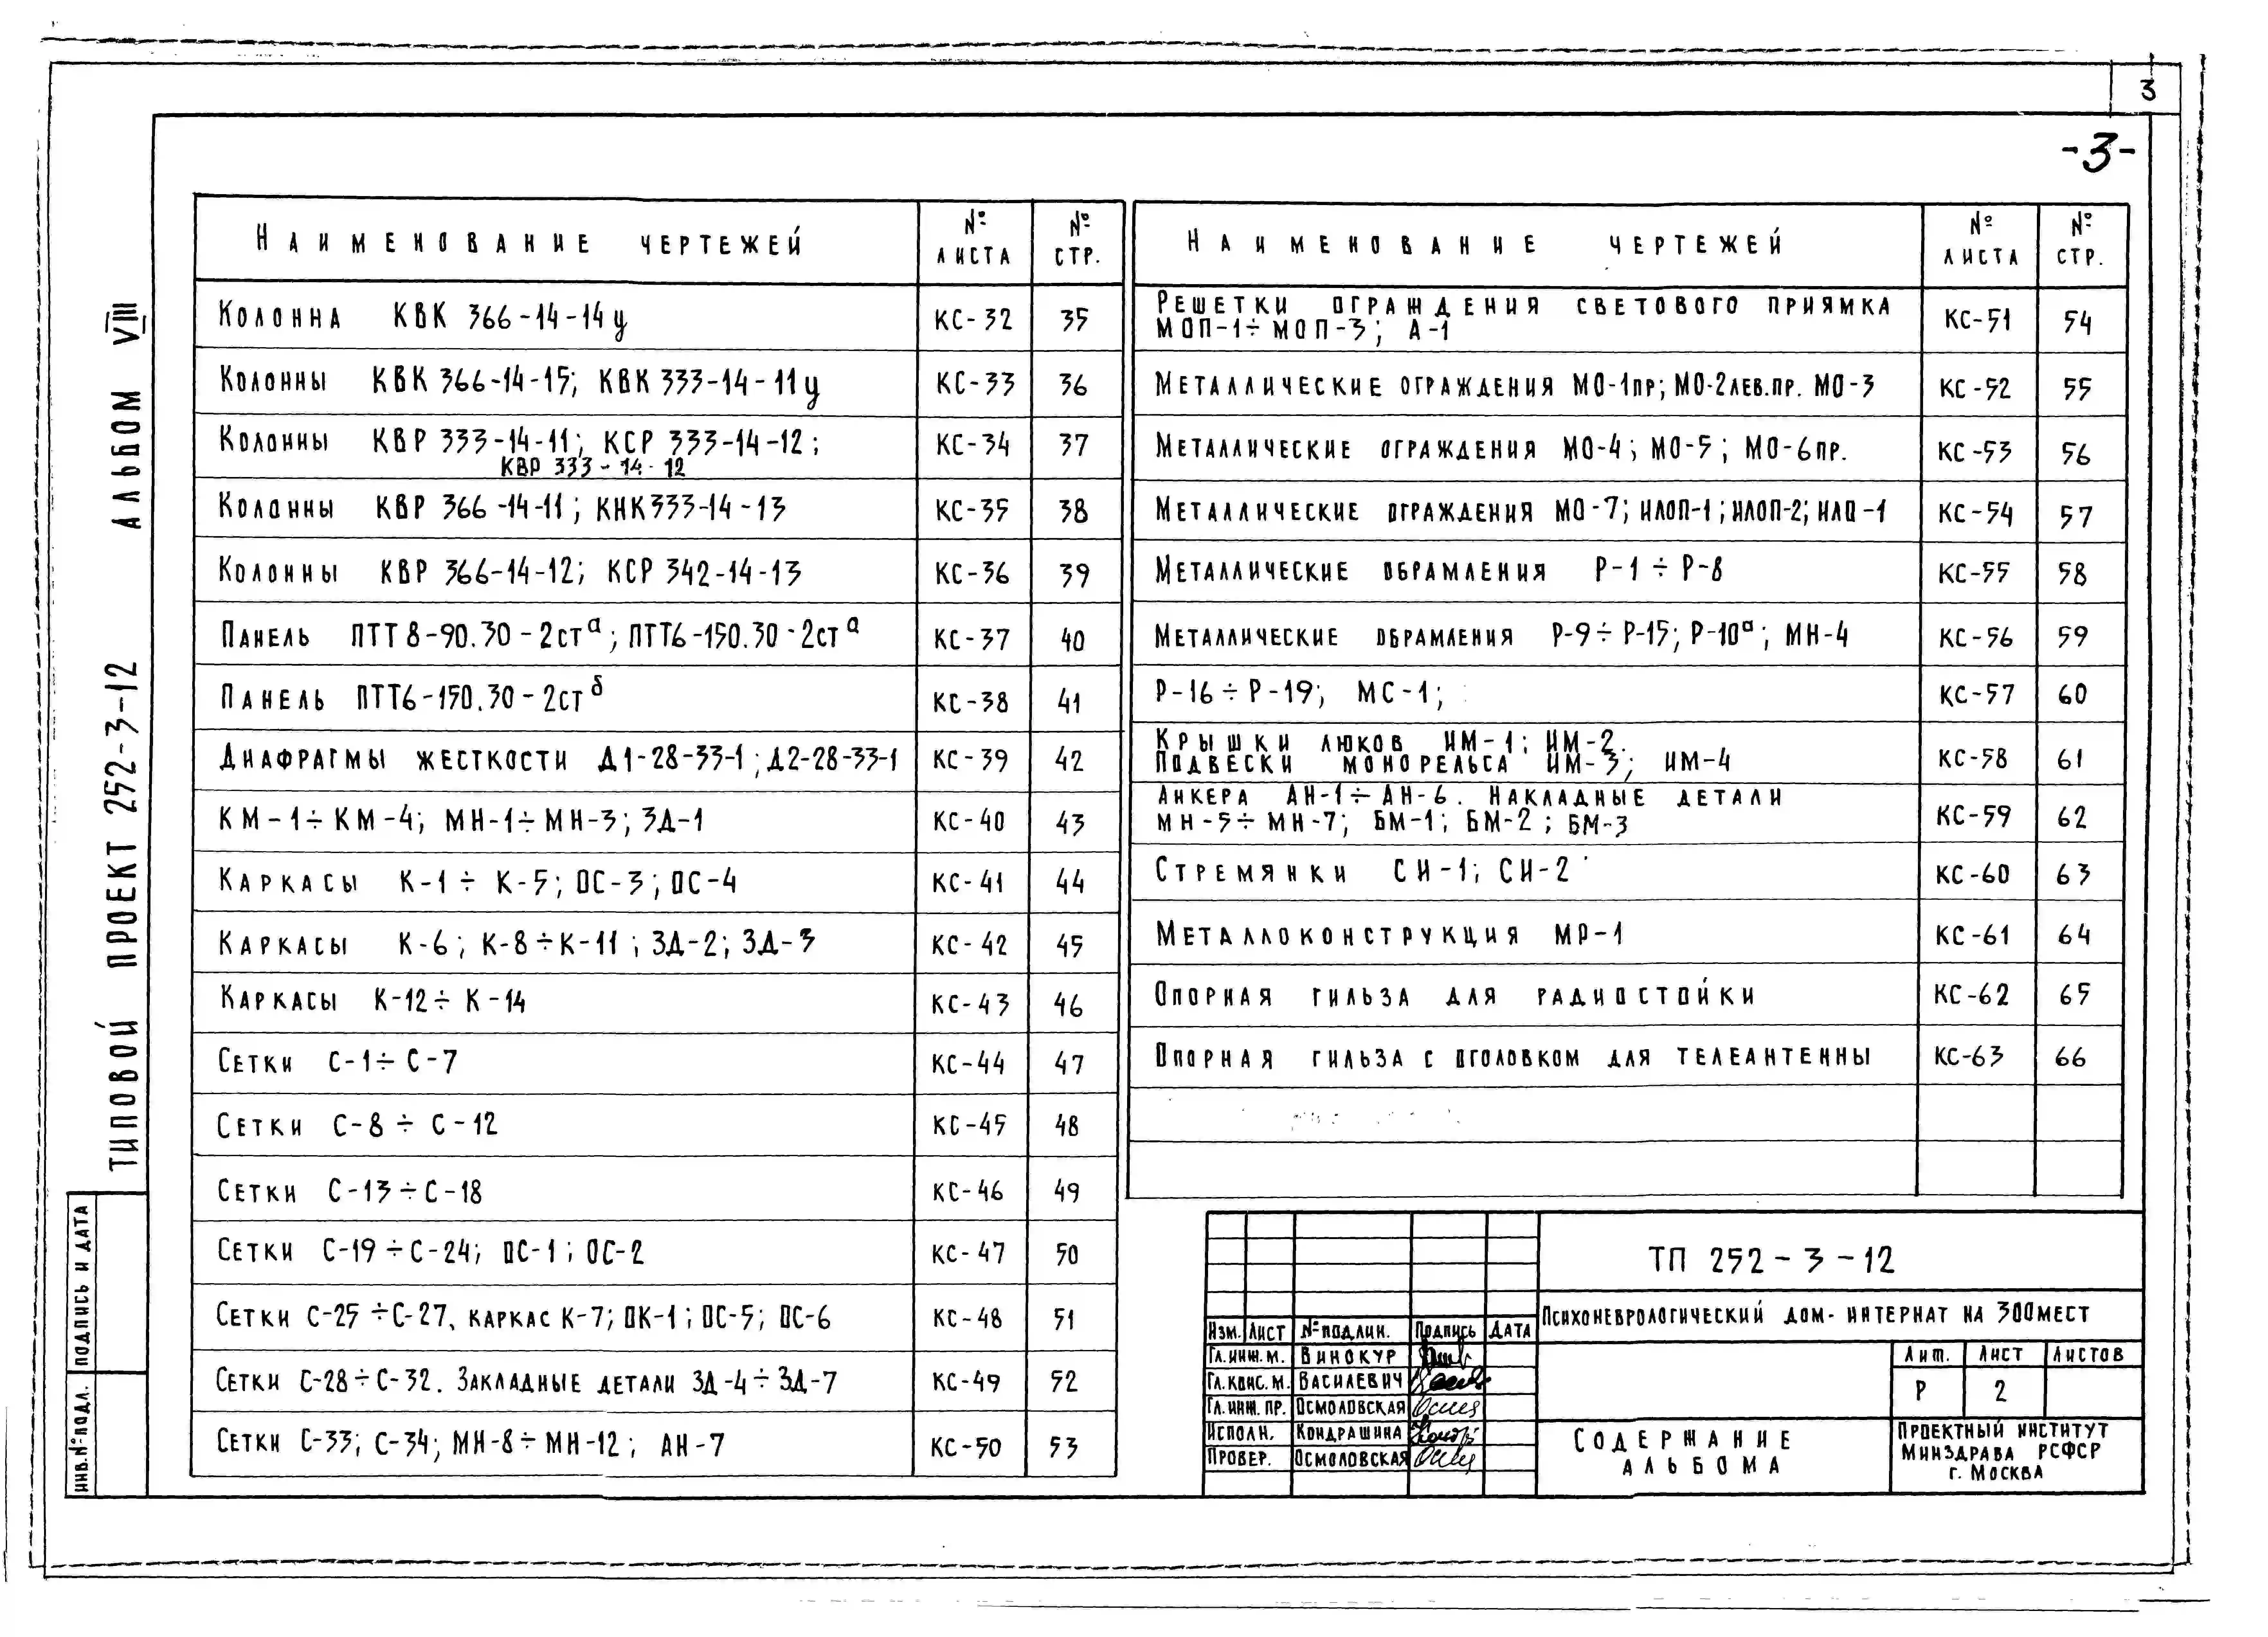 3
-3-
Наименование чертежей № листа № стр.
Колонна КВК 366-14-14у КС-32 35
Колонны КВК 366-14-15; КВК 333-14-11у КС-33 36
Колонны КВР 333-14-11; КСР 333-14-12; КС-34 37
КВР 333-14-12
Колонны КВР 366-14-11; КНК 333-14-13 КС-35 38
Колонны КВР 366-14-12; КСР 342-14-13 КС-36 39
Панель ПТТ8-90.30-2стᵃ; ПТТ6-150.30-2стᵃ КС-37 40
Панель ПТТ6-150.30-2стᵟ КС-38 41
Диафрагмы жесткости Д1-28-33-1; Д2-28-33-1 КС-39 42
КМ-1÷КМ-4; МН-1÷МН-3; ЗД-1 КС-40 43
Каркасы К-1÷К-5; ОС-3; ОС-4 КС-41 44
Каркасы К-6; К-8÷К-11; ЗД-2; ЗД-3 КС-42 45
Каркасы К-12÷К-14 КС-43 46
Сетки С-1÷С-7 КС-44 47
Сетки С-8÷С-12 КС-45 48
Сетки С-13÷С-18 КС-46 49
Сетки С-19÷С-24; ОС-1; ОС-2 КС-47 50
Сетки С-25÷С-27, каркас К-7; ОК-1; ОС-5; ОС-6 КС-48 51
Сетки С-28÷С-32. Закладные детали ЗД-4÷ЗД-7 КС-49 52
Сетки С-33; С-34; МН-8÷МН-12; АН-7 КС-50 53
Наименование чертежей № листа № стр.
Решетки ограждения светового приямка
МОП-1÷МОП-3; А-1 КС-51 54
Металлические ограждения МО-1пр; МО-2лев.пр. МО-3 КС-52 55
Металлические ограждения МО-4; МО-5; МО-6пр. КС-53 56
Металлические ограждения МО-7; ИЛОП-1; ИЛОП-2; ИЛО-1 КС-54 57
Металлические обрамления Р-1÷Р-8 КС-55 58
Металлические обрамления Р-9÷Р-15; Р-10ᵃ; МН-4 КС-56 59
Р-16÷Р-19; МС-1; КС-57 60
Крышки люков ИМ-1; ИМ-2.
Подвески монорельса ИМ-3; ИМ-4 КС-58 61
Анкера АН-1÷АН-6. Накладные детали
МН-5÷МН-7; БМ-1; БМ-2; БМ-3 КС-59 62
Стремянки СИ-1; СИ-2 КС-60 63
Металлоконструкция МР-1 КС-61 64
Опорная гильза для радиостойки КС-62 65
Опорная гильза с оголовком для телеантенны КС-63 66
ТП 252-3-12
Психоневрологический дом-интернат на 300мест
Изм. Лист №подлин. Подпись Дата
Гл.инж.м. Винокур
Гл.конс.м. Василевич
Гл.инж.пр. Осмоловская
Исполн. Кондрашина
Провер. Осмоловская
Лит. Лист Листов
Р 2
Содержание
альбома
Проектный институт
Минздрава РСФСР
г. Москва
Типовой проект 252-3-12 Альбом VIII
Подпись и дата
Инв.№подл.